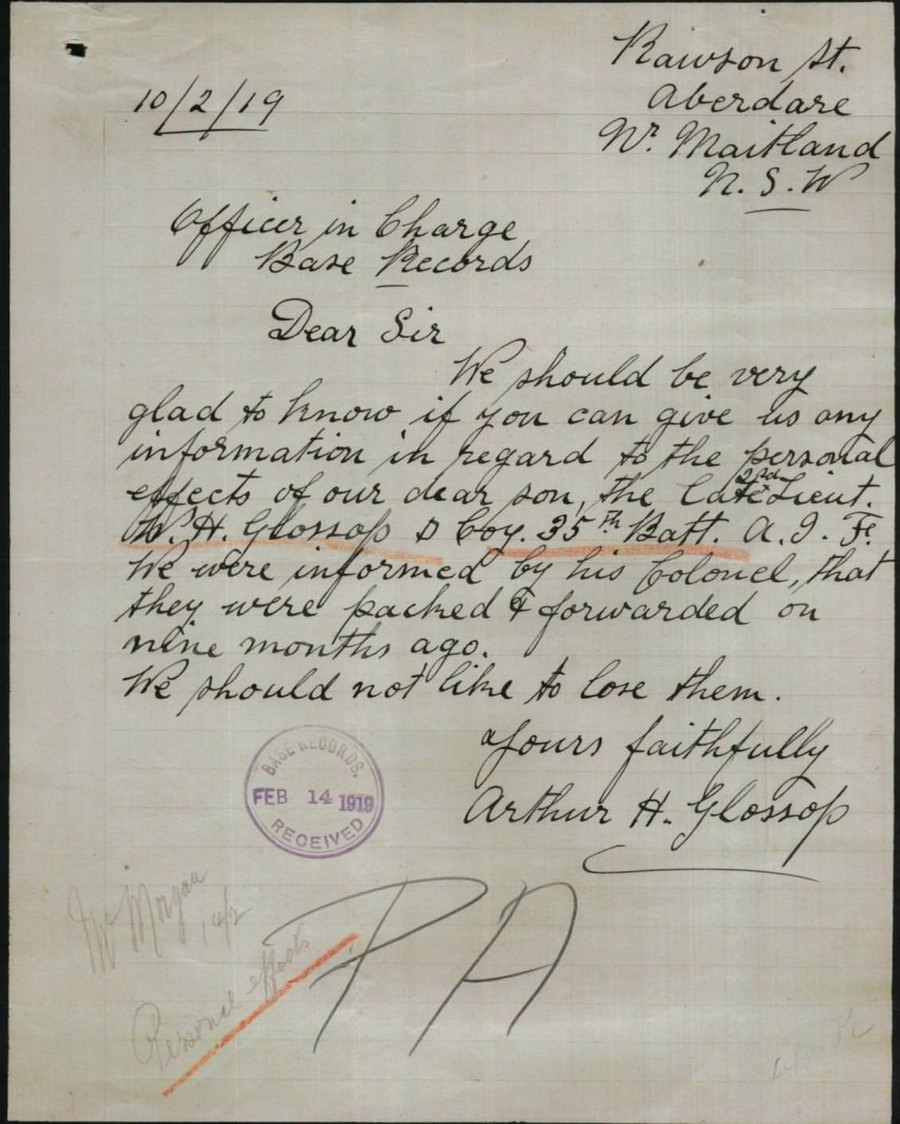 Rawson St.
Aberdare
Nr. Maitland
N. S. W
10/2/19
Officer in Charge
Base Records
Dear Sir
We should be very
glad to know if you can give us any
information in regard to the personal
effects of our dear son, the late 2nd Lieut.
W. H. Glossop D Coy. 35th Batt. A. I. F.
We were informed by his Colonel, that
they were packed & forwarded on
nine months ago.
We should not like to lose them.
Yours faithfully
Arthur H. Glossop
BASE RECORDS.
FEB 14 1919
RECEIVED
Mr Morgan
14/2
Personal effects
PA